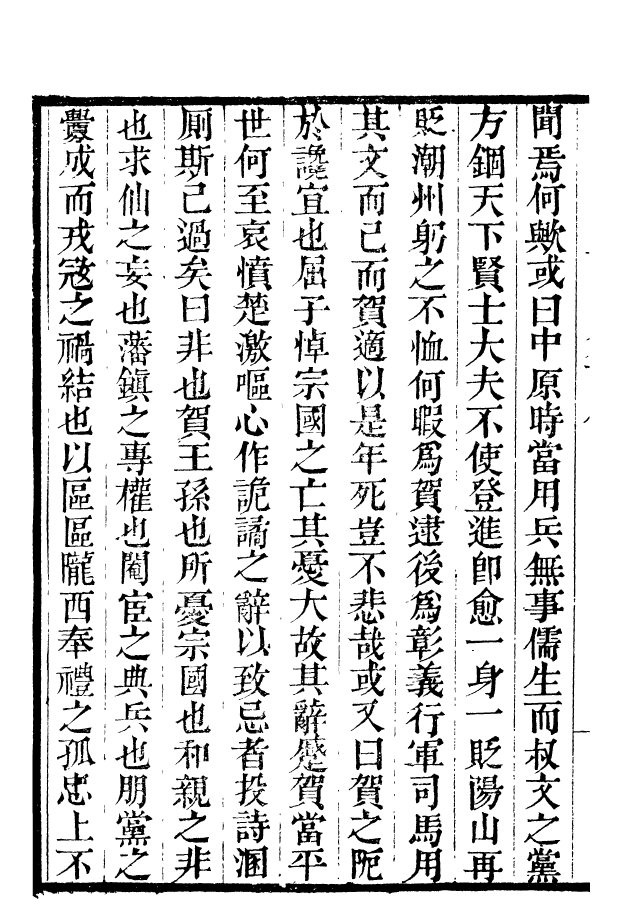 聞焉何歟或曰中原時當用兵無事儒生而叔文之黨
方錮天下賢士大夫不使登進卽愈一身一貶陽山再
貶潮州躬之不恤何暇爲賀逮後爲彰義行軍司馬用
其文而已而賀適以是年死豈不悲哉或又曰賀之阨
於讒宜也屈子悼宗國之亡其憂大故其辭蹙賀當平
世何至哀憤楚激嘔心作詭譎之辭以致忌者投詩溷
厠斯已過矣曰非也賀王孫也所憂宗國也和親之非
也求仙之妄也藩鎮之專權也閹宦之典兵也朋黨之
釁成而戎寇之禍結也以區區隴西奉禮之孤忠上不